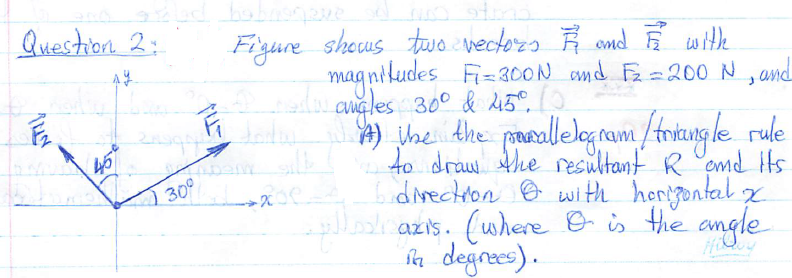 Question 2: Figure shows two vectors F₁ and F₂ with
magnitudes F₁=300N and F₂=200 N, and
angles 30° & 45°.
A) Use the parallelogram/triangle rule
to draw the resultant R and its
direction θ with horizontal x
axis. (where θ is the angle
in degrees).
y
F₂
45°
F₁
30°
x